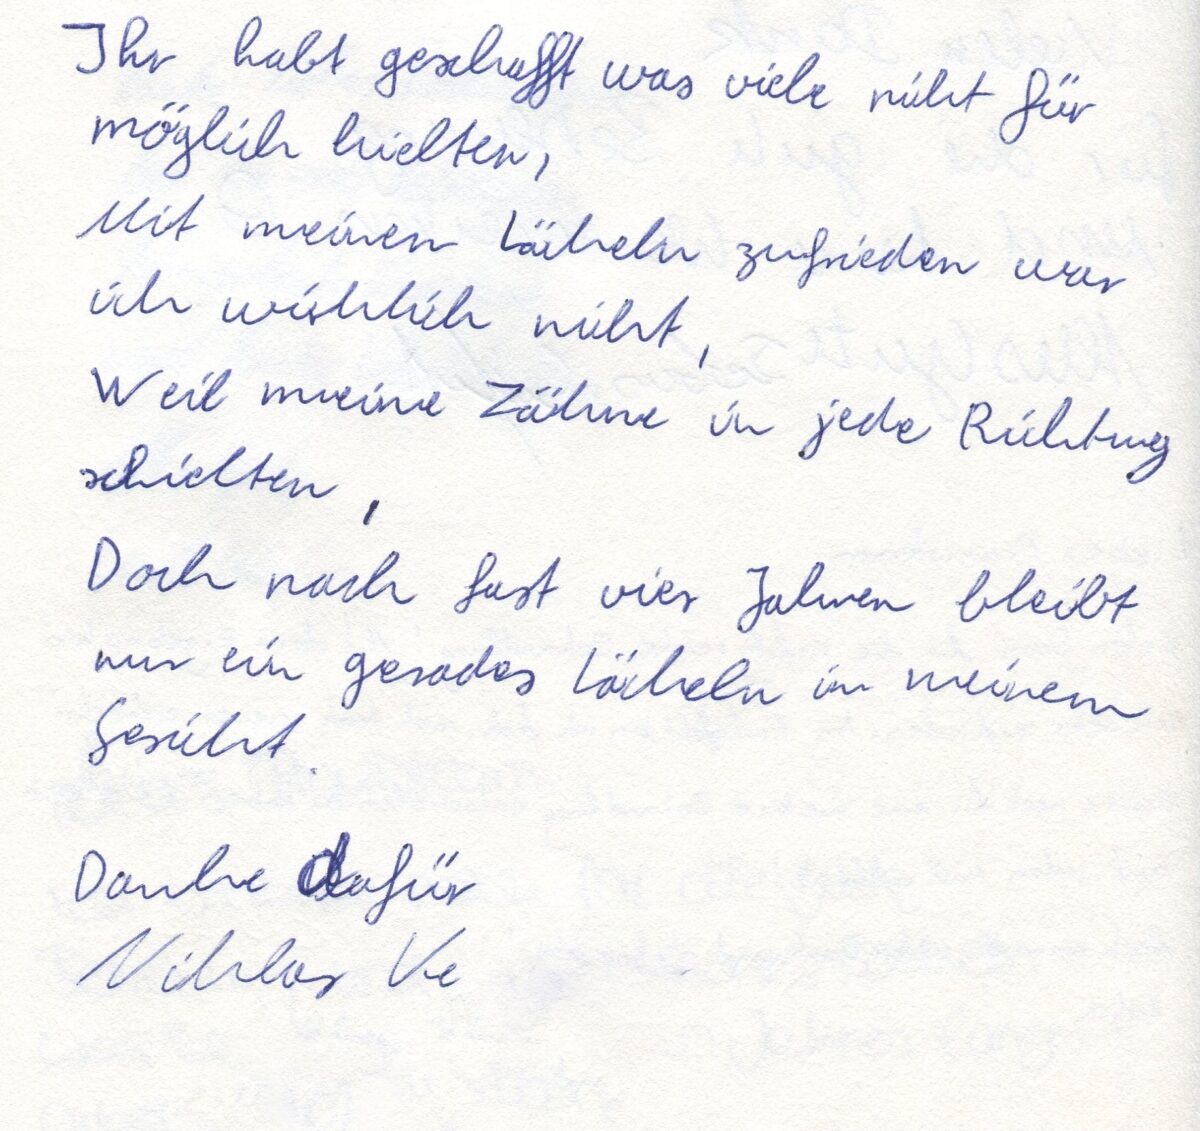 Ihr habt geschafft was viele nicht für
möglich hielten,
Mit meinen Lächeln zufrieden war
ich wirklich nicht,
Weil meine Zähne in jede Richtung
schielten,
Doch nach fast vier Jahren bleibt
nur ein gerades Lächeln in meinem
Gesicht.
Danke dafür
Niklas Ve